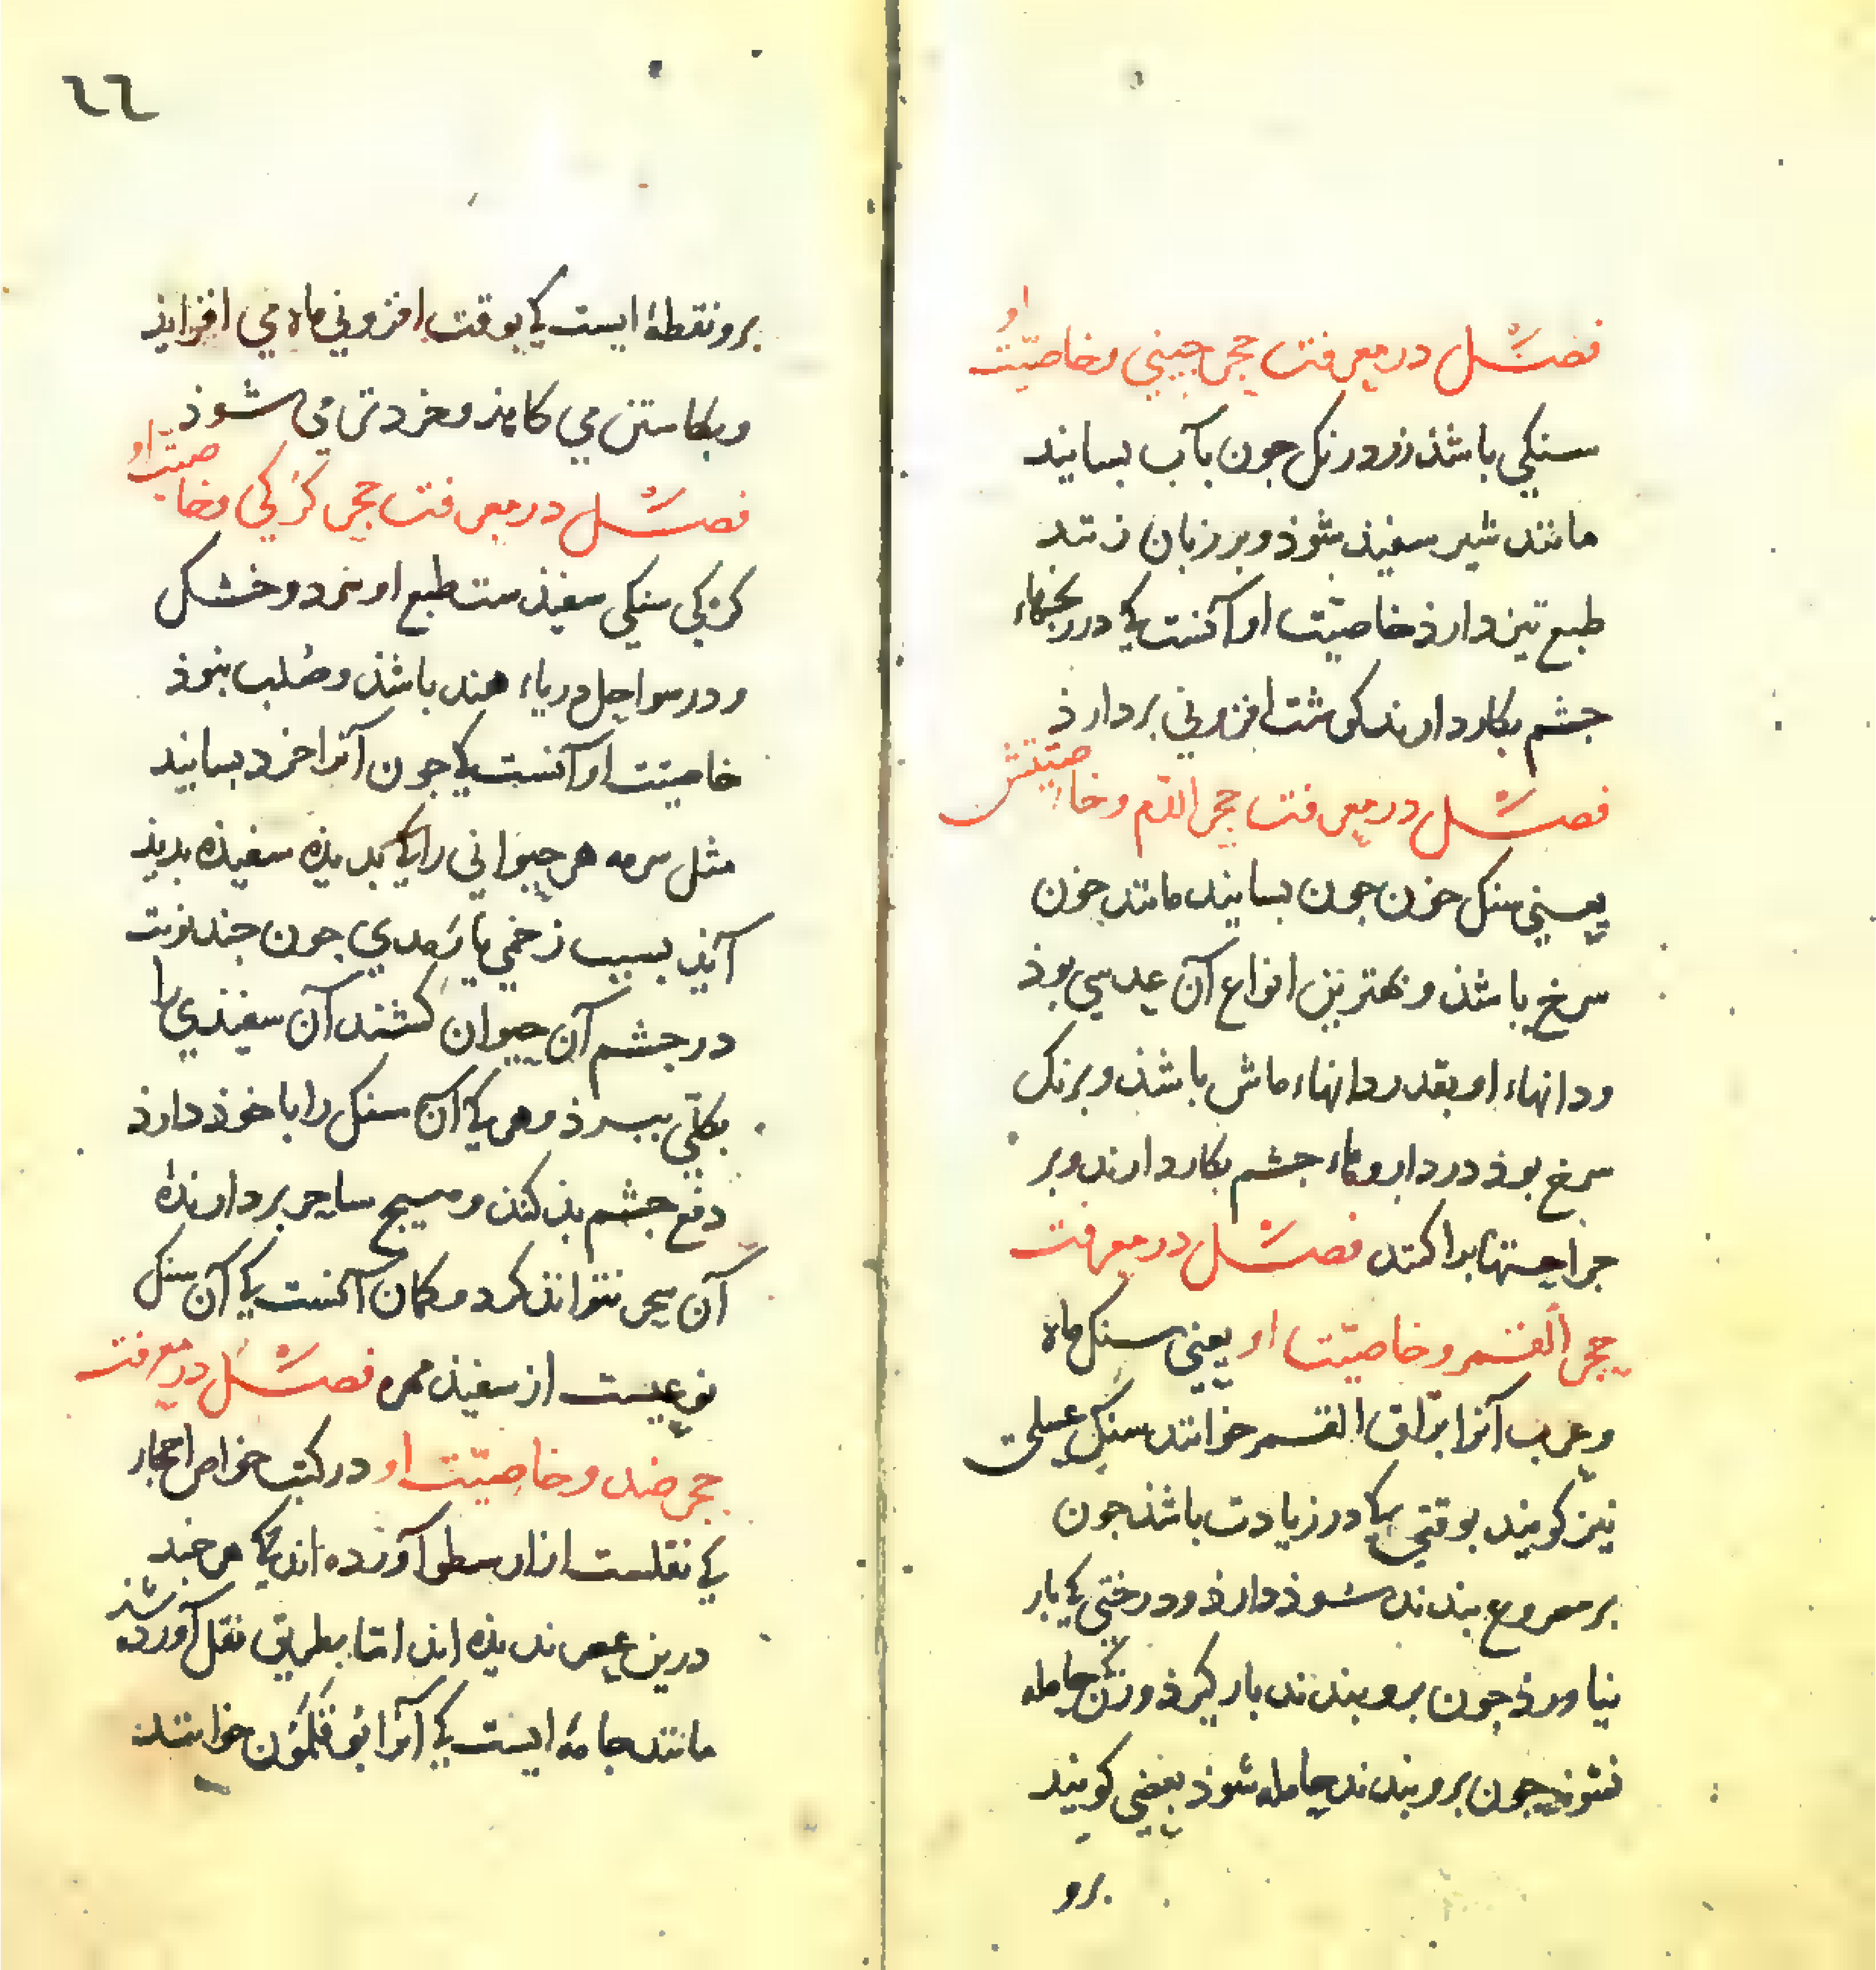 فصل در معرفت حجر حبشي وخاصيّت او
سنکي باشذ زرد رنک جون بآب بسايند
مانند شير سفيذ شوذ و بر زبان زند
طبع تيز دارذ خاصيّت او آنست کي در رنجهاء
جشم بکار دارند کوشت افزوني بردارذ
فصل در معرفت حجر الدّم وخاصيّتش
يعني سنک خون جون بسايند مانند خون
سرخ باشذ و بهترين انواع آن عدسي بوذ
و دانهاء او بقدر دانهاء ماش باشذ و برنک
سرخ بوذ در داروهاء جشم بکار دارند و بر
جراحيتها براکنند فصل در معرفت
حجر القمر وخاصيّت او يعني سنک ماه
و عرب آنرا بزاق القمر خوانند سنک عسلي
نيز کويند بوقتي کي ماه در زيادت باشذ جون
بر مصروع بندند سوذ دارذ و درختي کي بار
نياورذ جون برو بندند بار کيرذ و زن کي حامله
نشوذ جون برو بندند حامله شوذ بعضي کويند
برو
٦٦
برو نقطهٔ ايست کي بوقت افزوني ماه مي افزايذ
و بکاستن مي کاهذ و خردتر مي شوذ
فصل در معرفت حجر کرکي وخاصيّت او
کرکي سنکي سفيذست طبع او سرد و خشک
و در سواحل درياء هند باشذ و صُلب بنوذ
خاصيّت او آنست کي جون آنرا خرد بسايند
مثل سرمه هر حيواني را کي بديذه سفيذه بديذ
آيذ بسبب زخمي يا رَمدي جون جند نوبت
در جشم آن حيوان کشند آن سفيذي را
بکلّي ببرذ و هر کي آن سنک را با خوذ دارذ
دفع جشم بذ کند و هيچ ساحر بر دارندهٔ
آن سحر نتوانذ کرد و کمان آنست کي آن سنک
نوعيست از سفيذ مهره فصل در معرفت
حجر ضد وخاصيّت او در کتب خواص احجار
کي نقلست از ارسطو آورده اند کي هر جند
درين عصر نديذه اند امّا بطريق نقل آورده شذ
مانند جامهٔ ايست کي آنرا بُوقَلَمُون خوانند